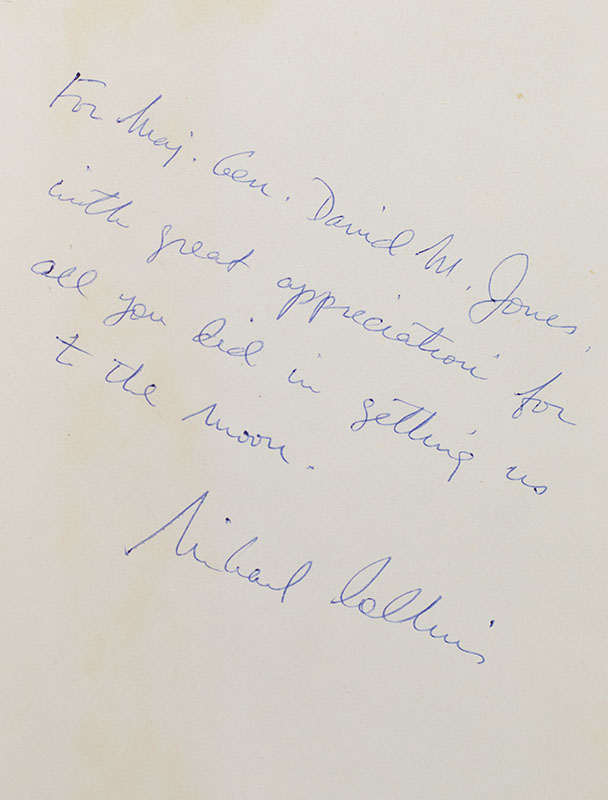 For Maj. Gen. David M. Jones,
with great appreciation for
all you did in getting us
t the moon.
Michael Collins